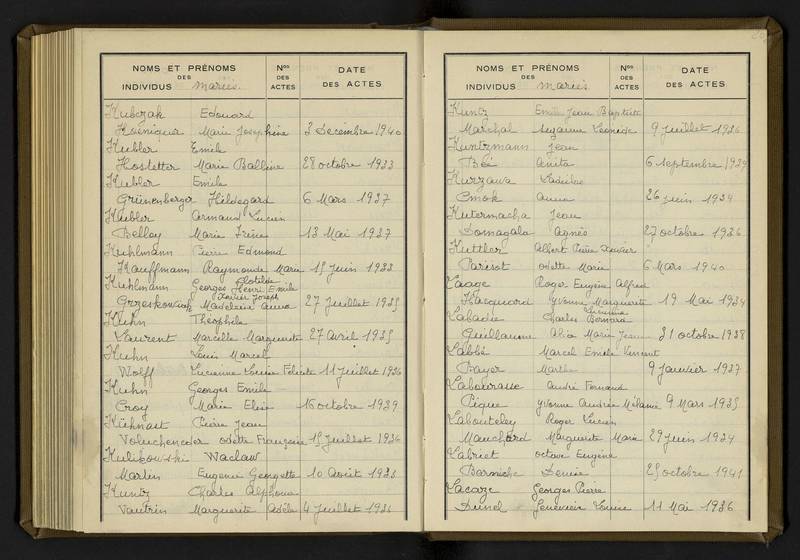 NOMS ET PRÉNOMS
DES
INDIVIDUS mariés.
Nos
DES
ACTES
DATE
DES ACTES
Kubczak Edouard
Hoeniquer Marie Josephine 3 Décembre 1940
Kubler Emile
Hostetter Marie Balbine 28 octobre 1933
Kubler Emile
Grünenberger Hildegard 6 Mars 1937
Kubler Armand Lucien
Belloy Marie Irène 13 Mai 1937
Kuhlmann Pierre Edmond
Kauffmann Raymonde Marie 15 juin 1933
Clotilde
Kuhlmann Georges Henri Emile
Xavier Joseph
Grzeskowiak Madeleine Anna 27 juillet 1935
Kuhn Théophile
Laurent Marcelle Marguerite 27 avril 1935
Kuhn Louis Marcel
Wolff Lucienne Louise Félicité 11 juillet 1936
Kuhn Georges Emile
Croy Marie Elise 16 octobre 1939
Kühnast Pierre Jean
Odette Françoise 15 juillet 1936
Kulikowski Waclaw
Martin Eugenie Georgette 10 Août 1933
Kuntz Charles Alphonse
Vautrin Marguerite Adèle 4 juillet 1936
NOMS ET PRÉNOMS
DES
INDIVIDUS mariés
Nos
DES
ACTES
DATE
DES ACTES
Kuntz Emile Jean Baptiste
Marchal Suzanne Leonide 9 juillet 1936
Kuntzmann Jean
Bei Anita 6 septembre 1939
Kurzawa Ladislas
Cmok Anna 26 juin 1934
Kutermacha Jean
Domagala Agnès 27 octobre 1936
Kuttler Albert Pierre Xavier
Parisot Odette Marie 6 Mars 1940
Laage Roger Eugène Alfred
Hacquard Yvonne Marguerite 19 Mai 1934
Lucienne
Labadie Charles Bernard
Guillaume Alice Marie Jeanne 31 octobre 1938
Labbé Marcel Emile Vincent
Bayer Marthe 9 janvier 1937
Labourasse André Fernand
Pique Yvonne Andrée Mélanie 9 Mars 1935
Labouteley Roger Lucien
Mauchard Marguerite Marie 29 juin 1934
Labriet Octave Eugène
Barniche Denise 25 octobre 1941
Lacaze Georges Pierre
Dunel Geneviève Louise 11 Mai 1936